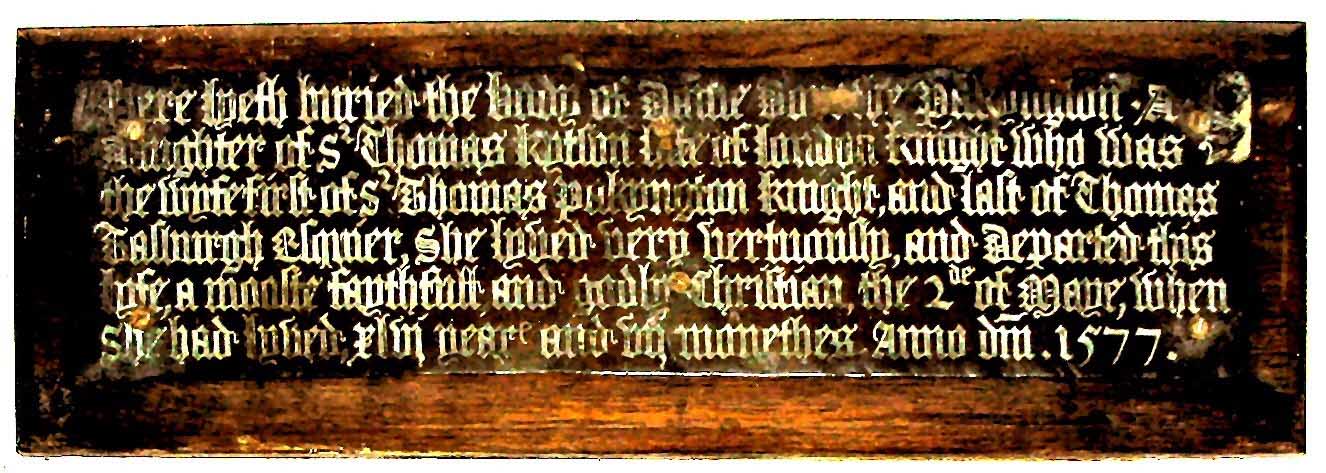 Here lyeth buried the body of Dame Dorothy Pakyngton, A
daughter of Sr Thomas Kytson late of london knight who was
the wyfe first of Sr Thomas pakyngton knight, and last of Thomas
Tasburgh Esquier, She lyved very vertuously, and Departed this
lyfe, a mooste faythfull, and godly Christian, the 2de of Maye, when
She had lyved, xlvij yeare and vij monethes Anno dm̄. 1577.